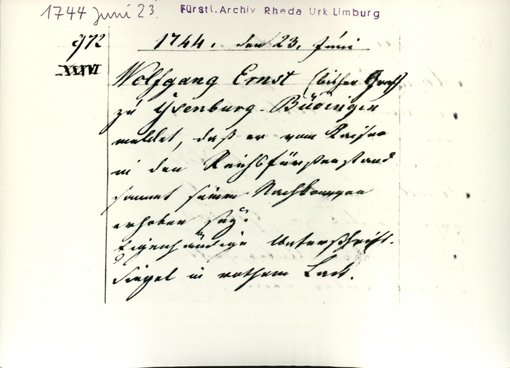 1744 Juni 23.
Fürstl. Archiv Rheda Urk. Limburg
972
XXXVI
1744. den 23. Juni
Wolfgang Ernst (bisher Graf)
zu Ysenburg-Büdingen
meldet, daß er vom Kaiser
in den Reichsfürstenstand
sammt seinen Nachkommen
erhoben sey.
Eigenhändige Unterschrift.
Siegel in rothem Lack.